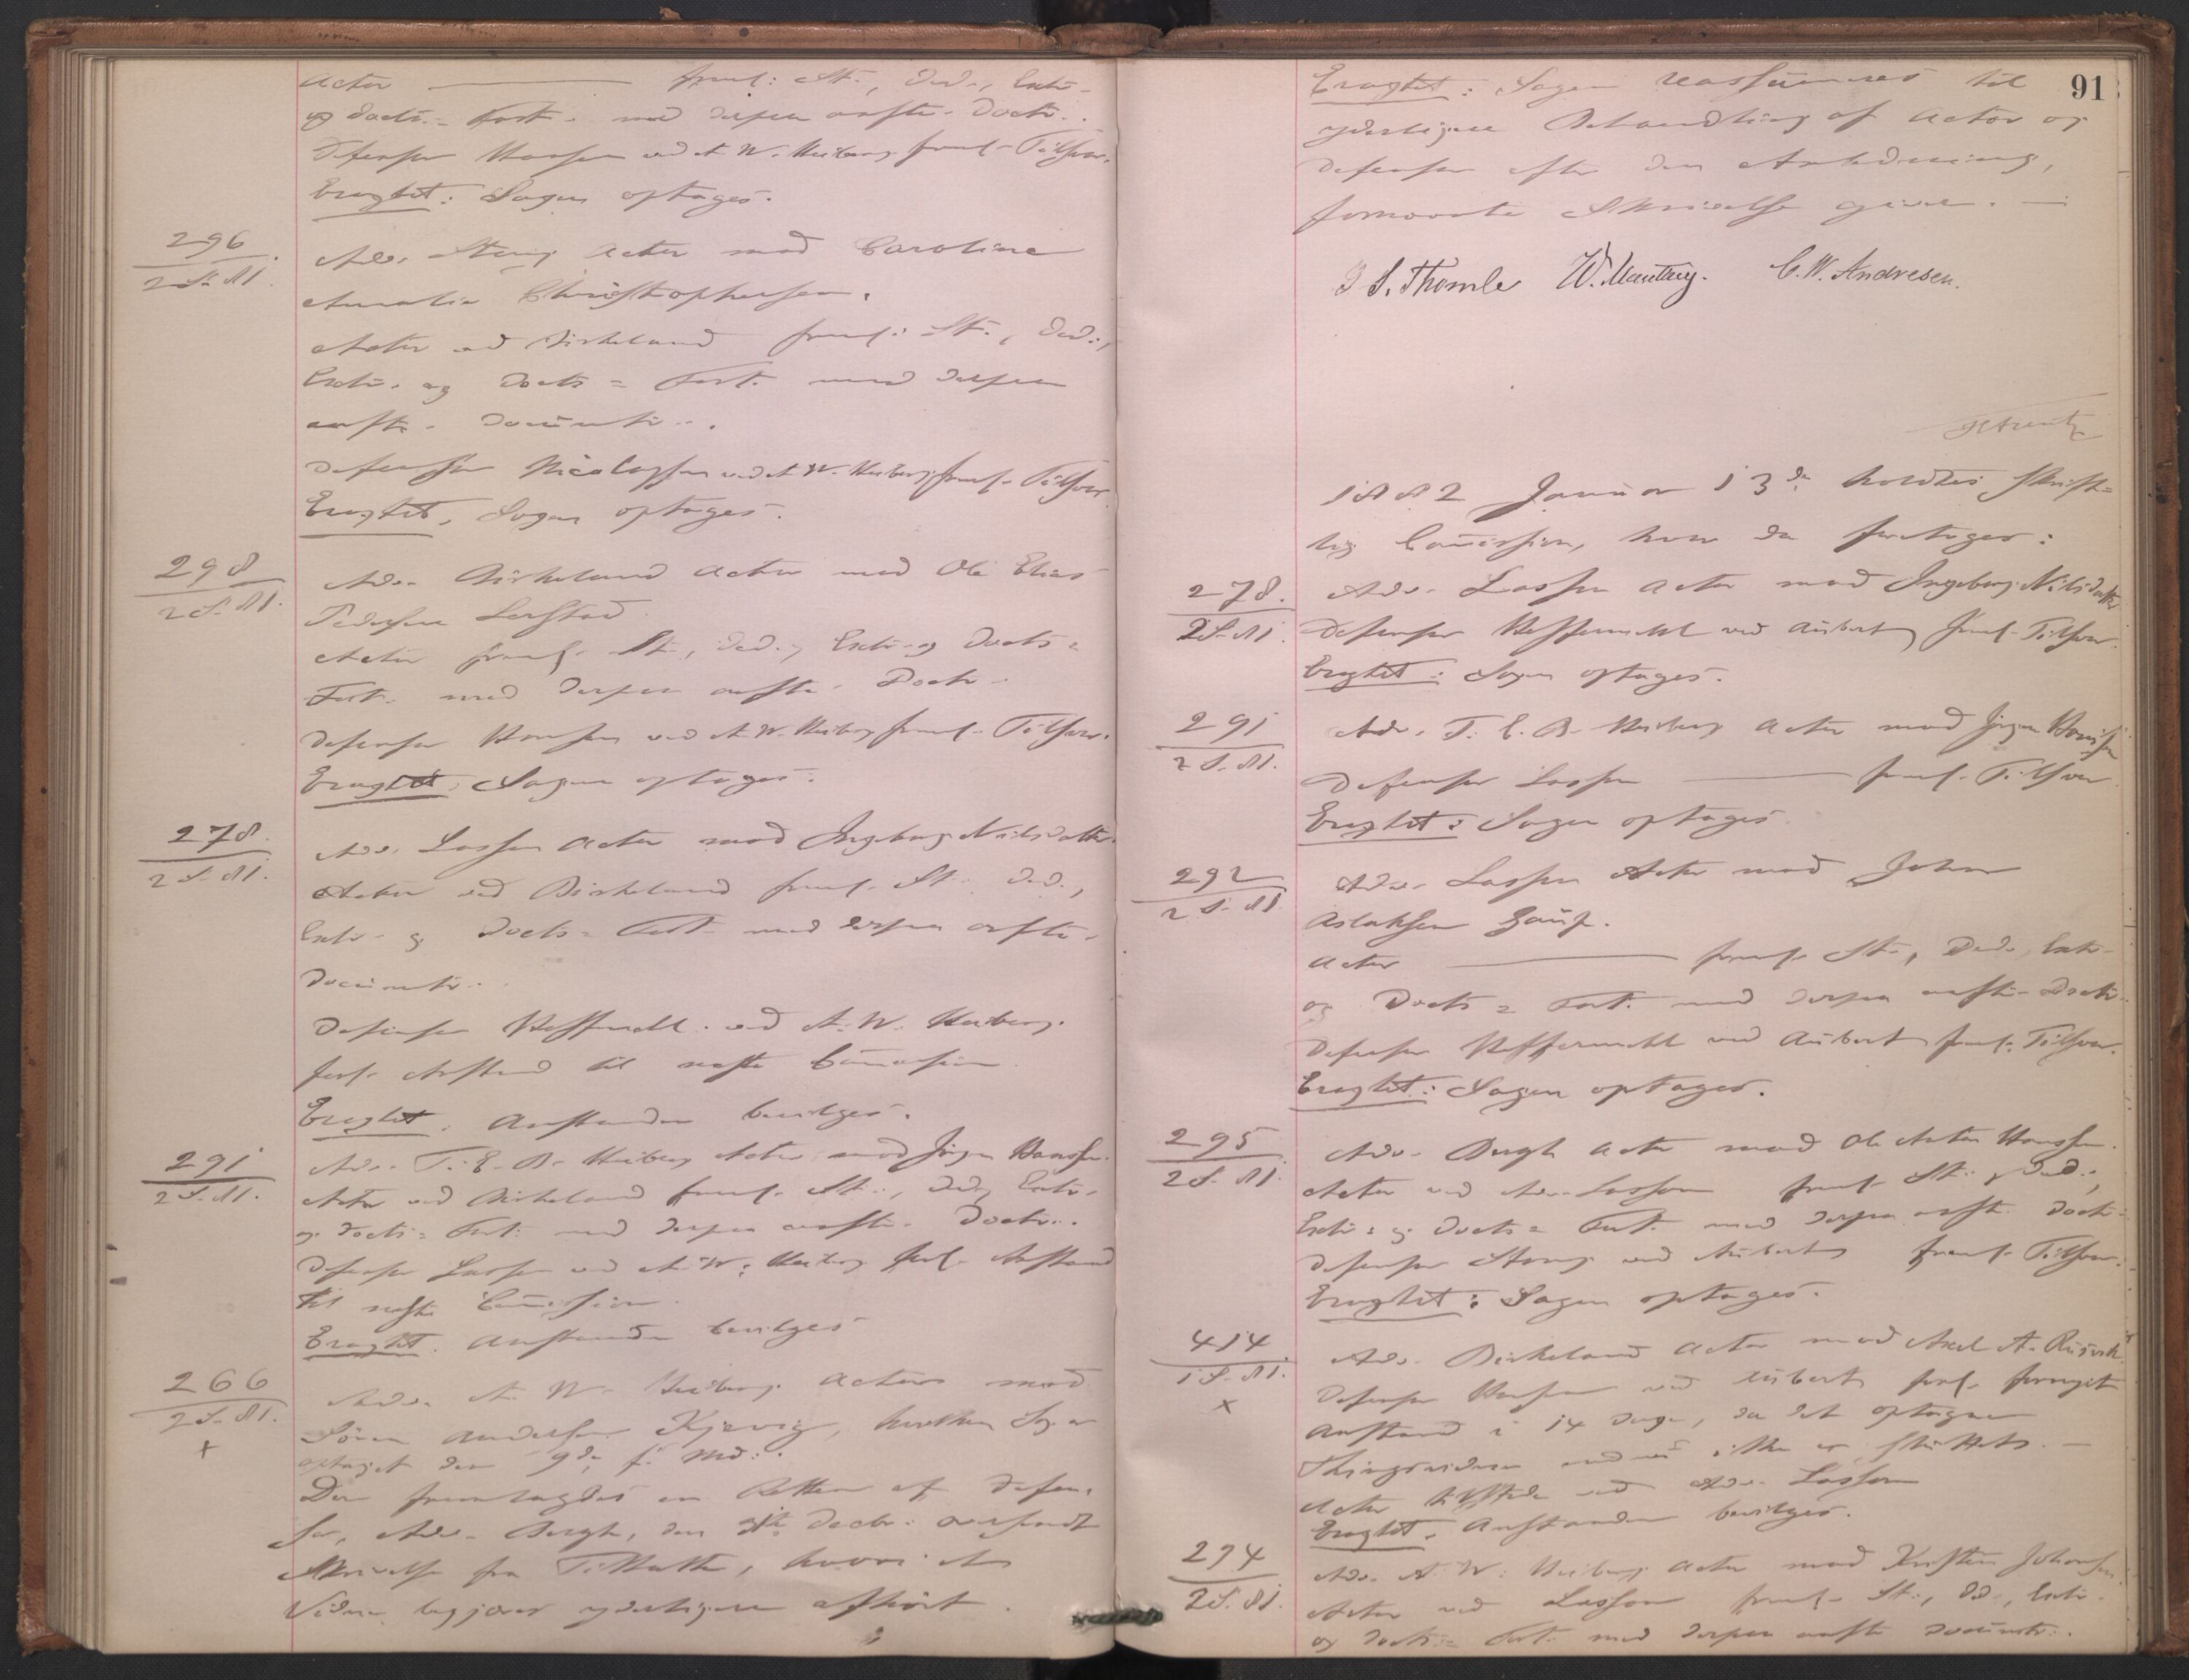 Actor — freml: St., Ded., Extr.
og Docts.= Fort. med derpaa anførte Doctr.
Defensor Hansen ved A. W. Heiberg freml. Tilsvar.
Eragtet: Sagen optages.
296
2 S. 81.
Adv. Stang Actor mod Caroline
Amalie Christophersen.
Actor ved Birkeland freml: St., Ded.,
Extr. og Docts = Fort. med derpaa
anførte Documtr.
Defensor Nicolaysen ved A. W. Heiberg freml. Tilsvar
Eragtet, Sagen optages.
298
2 S. 81.
Adv. Birkeland Actor mod Ole Elias
Pedersen
Actor freml. St., Ded., Extr. og Docts =
Fort. med derpaa anførte Doctr.
Defensor Hansen ved A. W. Heiberg freml. Tilsvar.
Eragtet, Sagen optages.
278.
2 S. 81.
Adv. Lassen Actor mod Ingeborg Nilsdatter.
Actor ved Birkeland freml. St., Ded.,
Extr. og Docts = Fort. med derpaa anførte
Documtr.
Defensor Heffermehl ved A. W. Heiberg
forl. Anstand til næste Commission
Eragtet. Anstanden bevilges.
291
2 S. 81.
Adv. T. E. B. Heiberg Actor mod Jørgen Hansen.
Actor ved Birkeland freml. St., Ded., Extr.
og Docts = Fort. med derpaa anførte Doctr.
Defensor Lassen ved A. W. Heiberg forl. Anstand
til næste Commission.
Eragtet. Anstanden bevilges
266
2 S. 81.
x
Adv. A. W. Heiberg Actor mod
Søren Andersen Kjervig, hvilken Sag er
optaget den 9de f. Md.
Der fremlagdes en Retten af Defen=
sor, Adv. Bergh, den Decbr. oversendt
Skrivelse fra Tiltalte, hvori
Vidner begjæres yderligere afhørt.
91
Eragtet: Sagen reassumeres til
yderligere Behandling af Actor og
Defensor efter den Anledning,
fornævnte Skrivelse giver.
I. S. Thomle W. C. W. Andresen.
1882 Januar 13de holdtes skrift=
lig Commission, hvor da foretoges:
278.
2 S. 81.
Adv. Lassen Actor mod Ingeborg Nilsdatter
Defensor Heffermehl ved Aubert freml. Tilsvar.
Eragtet: Sagen optages.
291
2 S. 81.
Adv. T. E. B. Heiberg Actor mod Jørgen Hansen
Defensor Lassen — freml. Tilsvar
Eragtet: Sagen optages.
292
2 S. 81
Adv. Lassen Actor mod Johan
Aslaksen
Actor — freml. St., Ded., Extr.
og Docts = Fort. med derpaa anførte Doctr.
Defensor Heffermehl ved Aubert freml. Tilsvar.
Eragtet: Sagen optages.
295
2 S. 81.
Adv. Bergh Actor mod Ole Anton Hanssen.
Actor ved Adv. Lasson freml. St., Ded.,
Extr. og Docts = Fort. med derpaa anførte Doctr.
Defensor Stang ved Aubert freml. Tilsvar.
Eragtet: Sagen optages.
414
1 S. 81.
x
Adv. Birkeland Actor mod Axel A.
Defensor Hansen ved Aubert forl. fornyet
Anstand i 14 Dage, da det optagne
Thingsvidne endnu ikke er sluttet.
Actor tilstede ved Adv. Lasson
Eragtet. Anstanden bevilges.
294
2 S. 81.
Adv. A. W. Heiberg Actor mod Kristen Johansen
Actor ved Lasson freml. St., Ded., Extr.
og Docts = Fort. med derpaa anførte Documtr.